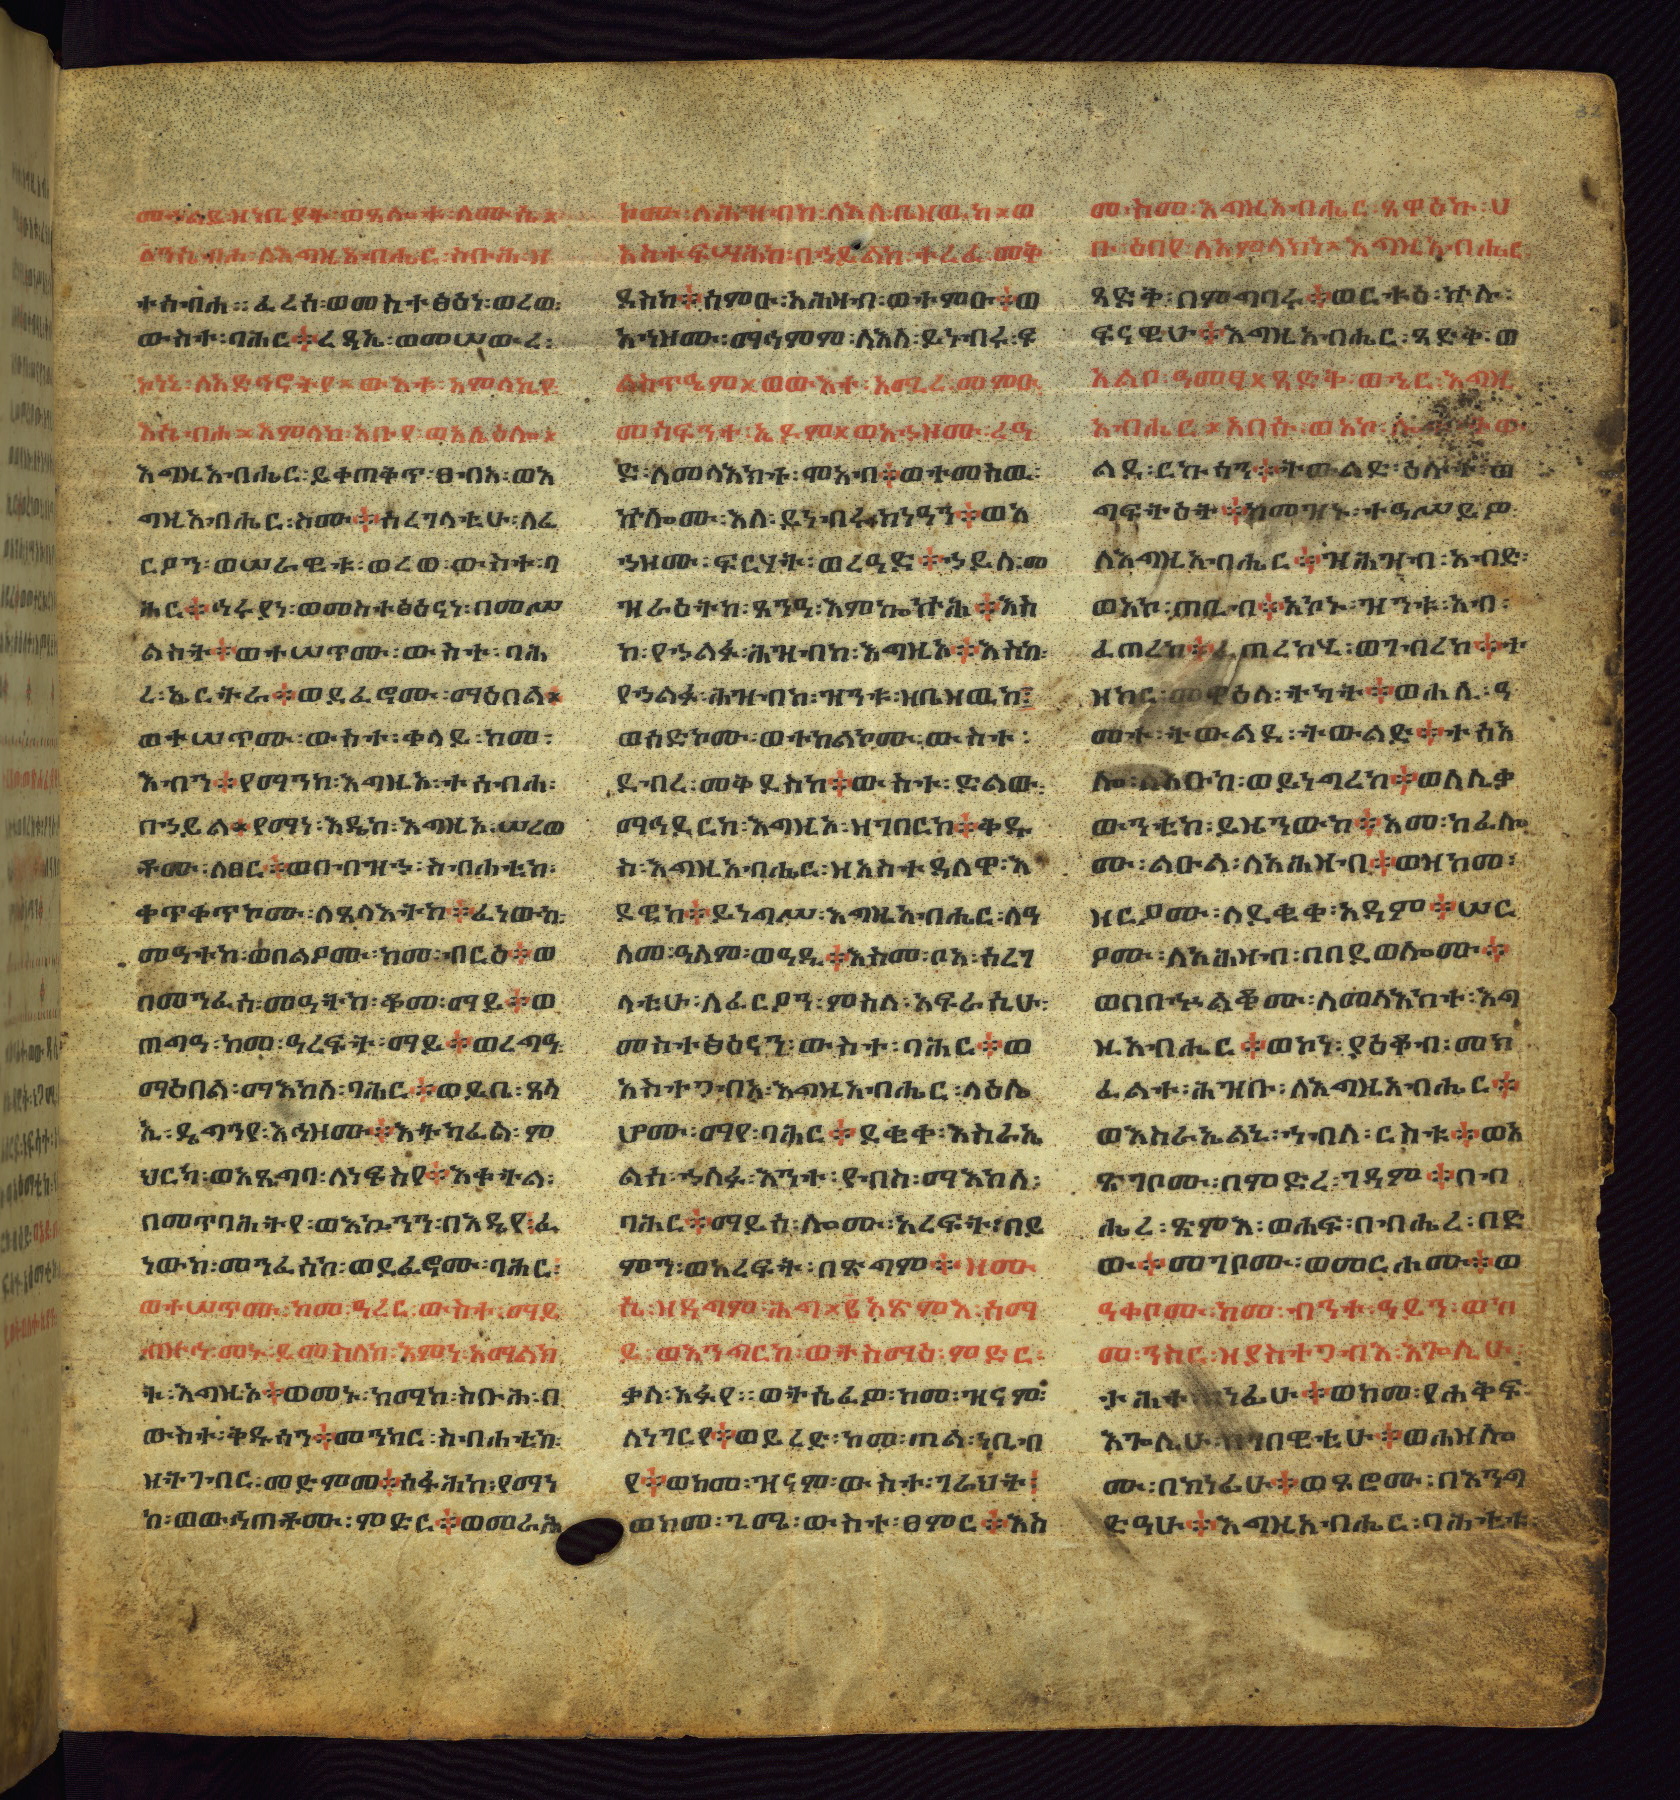 መኃልይ፡ዘነቢያት፡ወጸሎቱ፡ለሙሴ፨
ለንሴብሖ፡ለእግዚአብሔር፡ስቡሕ፡ዘ
ተሰብሐ፡፡ፈረሰ፡ወመስተፅዕነ፡ወረወ፡
ውስተ፡ባሕር፨ረዳኢ፡ወመሠውረ፡
ኮነኒ፡ለአድኅኖትየ፨ውእቱ፡አምላኪየ
እሴብሖ፨አምላከ፡አቡየ፡ወአሌዕሎ፨
እግዚአብሔር፡ይቀጠቅጥ፡ፀብአ፡ወእ
ግዚአብሔር፡ስሙ፨ሰረገላቲሁ፡ለፈ
ርዖን፡ወሠራዊቱ፡ወረወ፡ውስተ፡ባ
ሕር፨ኅሩያነ፡ወመስተፅዕናነ፡በመሠ
ልስት፨ወተሠጥሙ፡ውስተ፡ባሕ
ረ፡ኤርትራ፨ወደፈኖሙ፡ማዕበል፨
ወተሠጥሙ፡ውስተ፡ቀላይ፡ከመ፡
እብን፨የማንከ፡እግዚኦ፡ተሰብሐ፡
በኃይል፨የማነ፡እዴከ፡እግዚኦ፡ሠረወ
ቶሙ፡ለፀር፨ወበብዝኃ፡ስብሐቲከ፡
ቀጥቀጥኮሙ፡ለጸላእትከ፨ፈነውከ፡
መዓተከ፡ወበልዖሙ፡ከመ፡ብርዕ፨ወ
በመንፈሰ፡መዓትከ፡ቆመ፡ማይ፨ወ
ጠግዓ፡ከመ፡ዓረፍት፡ማይ፨ወረግዓ፡
ማዕበል፡ማእከለ፡ባሕር፨ወይቤ፡ጸላ
ኢ፡ዴግንየ፡እኅዘሙ፨እትካፈል፡ም
ህርካ፡ወእጼግባ፡ለነፍስየ፨እቀትል፡
በመጥባሕትየ፡ወእኴንን፡በእዴየ፡ፈ
ነውከ፡መንፈሰከ፡ወደፈኖሙ፡ባሕር፡
ወተሠጥሙ፡ከመ፡ዓረር፡ውስተ፡ማይ
መኑ፡ይመስለከ፡እምነ፡አማልክ
ት፡እግዚኦ፨ወመኑ፡ከማከ፡ስቡሕ፡በ
ውስተ፡ቅዱሳን፨መንክር፡ስብሐቲከ፡
ዘትገብር፡መድምመ፨ሰፋሕከ፡የማነ
ከ፡ወውኅጠቶሙ፡ምድር፨ወመራሕ
ኮሙ፡ለሕዝብከ፡ለእለ፡ቤዘወከ፨ወ
አስተፍሣሕከ፡በኃይልከ፡ተረፈ፡መቅ
ደስከ፨ሰምዑ፡አሕዛብ፡ወተምዑ፨ወ
አኀዞሙ፡ማኅምም፡ለእለ፡ይነብሩ፡ፍ
ልስጥኤም፨ወውእተ፡አሚረ፡መምዑ
መሳፍንተ፡ኤዶም፨ወአኃዞሙ፡ረዓ
ድ፡ለመላእክተ፡ሞአብ፨ወተመስዉ፡
ኵሎሙ፡እለ፡ይነብሩ፡ከነዓን፨ወአ
ኀዞሙ፡ፍርሃት፡ወረዓድ፨ኃይለ፡መ
ዝራዕትከ፡ጸንዓ፡እምኰኵሕ፨እስ
ከ፡የኃልፉ፡ሕዝብከ፡እግዚኦ፨እስከ፡
የኃልፉ፡ሕዝብከ፡ዝንቱ፡ዘቤዘዉከ፤
ወስድኮሙ፡ወተከልኮሙ፡ውስተ፡
ደብረ፡መቅደስከ፨ውስተ፡ድልው፡
ማኅደርከ፡እግዚኦ፡ዘገበርከ፨ቅዱ
ስ፡እግዚአብሔር፡ዘአስተዳለዋ፡እ
ደዊከ፨ይነግሥ፡እግዚአብሔር፡ለዓ
ለመ፡ዓለም፡ወዓዲ፨እስመ፡ቦአ፡ሰረገ
ላቲሁ፡ለፈርዖን፡ምስለ፡አፍራሲሁ፡
መስተፅዕናን፡ውስተ፡ባሕር፨ወ
አስተጋብአ፡እግዚአብሔር፡ላዕሌ
ሆሙ፡ማየ፡ባሕር፨ደቂቀ፡እስራኤ
ልሰ፡ኃለፉ፡እንተ፡የብስ፡ማእከለ፡
ባሕር፨ማይሰ፡ሎሙ፡አረፍት፡በይ
ምን፡ወአረፍት፡በጽግም፨ዘሙ
ሴ፡ዘዳግም፡ሕግ፨፪አጽምእ፡ሰማ
ይ፡ወእንግርከ፡ወትስማዕ፡ምድር፡
ቃለ፡አፉየ፡፡ወትሴፈዎ፡ከመ፡ዝናም፡
ለነገርየ፨ወይረድ፡ከመ፡ጠል፡ነቢብ
የ፨ወከመ፡ዝናም፡ውስተ፡ገራህት፤
ወከመ፡ጊሜ፡ውስተ፡ፀምር፨እስ
መ፡ስመ፡እግዚአብሔር፡ጸዋዕኩ፡ሀ
ቡ፡ዕበየ፡ለአምላክነ፨እግዚአብሔር
ጻድቅ፡በምግባሩ፨ወርቱዕ፡ኵሉ፡
ፍናዊሁ፨እግዚአብሔር፡ጻድቅ፡ወ
አልቦ፡ዓመፃ፨ጻድቅ፡ወኄር፡እግዚ
አብሔር፨አበሱ፡ወአኮ፡ሎቱ፡
ልደ፡ርኩሳን፨ትውልድ፡ዕሉት፡ወ
ግፍትዕት፨ከመዝኑ፡ተዓሥይዎ
ለእግዚአብሔር፨ዝሕዝብ፡አብድ፡
ወአኮ፡ጠቢብ፨አኮኑ፡ዝንቱ፡አብ፡
ፈጠረከ፨ፈጠረከሂ፡ወገብረከ፨ተ
ዘከር፡መዋዕለ፡ትካት፨ወሐሊ፡ዓ
መተ፡ትውልደ፡ትውልድ፨ተስእ
ሎ፡ለአቡከ፡ወይነግረከ፨ወለሊቃ
ውንቲከ፡ይዜንውከ፨አመ፡ከፈሎ
ሙ፡ልዑል፡ለአሕዛብ፨ወዘከመ፡
ዘርዖሙ፡ለደቂቀ፡አዳም፨ሠር
ዖሙ፡ለአሕዛብ፡በበደወሎሙ፨
ወበበኍልቆሙ፡ለመላእክተ፡እግ
ዚአብሔር፨ወኮነ፡ያዕቆብ፡መክ
ፈልቱ፡ሕዝቡ፡ለእግዚአብሔር፨
ወእስራኤልኒ፡ኀብለ፡ርስቱ፨ወአ
ጽገቦሙ፡በምድረ፡ገዳም፨በብ
ሔረ፡ጽምእ፡ወሐፍ፡በብሔረ፡በድ
ው፨መገቦሙ፡ወመርሐሙ፨ወ
ዓቀቦሙ፡ከመ፡ብንተ፡ዓይን፡ወከ
መ፡ንስር፡ዘያስተጋብእ፡እጐሊሁ፡
ታሕተ፡ክነፊሁ፨ወከመ፡የሐቅፍ፡
እጐሊሁ፡በገበዋቲሁ፨ወሐዘሎ
ሙ፡በክነፊሁ፨ወጾሮሙ፡በእንግ
ድዓሁ፨እግዚአብሔር፡ባሕቲቱ፡